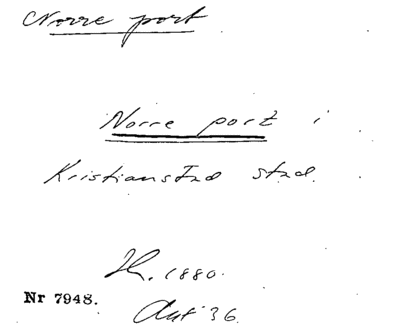 Norre port
Norre port i
Kristianstad stad.
H. 1880.
Nr 7948.
Aut 36